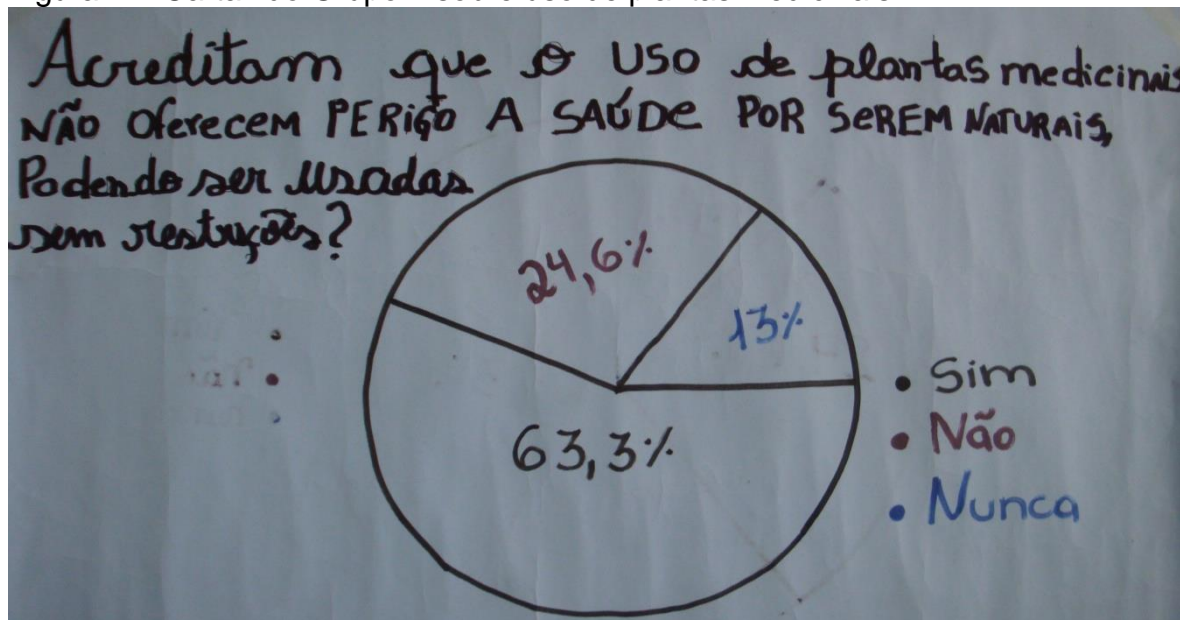 Acreditam que o USO de plantas medicinais
NÃO OFerecem PERIGO A SAÚDE POR SEREM NATURAIS,
Podendo ser usadas
sem restrições?
24,6%
13%
63,3%
• Sim
• Não
• Nunca